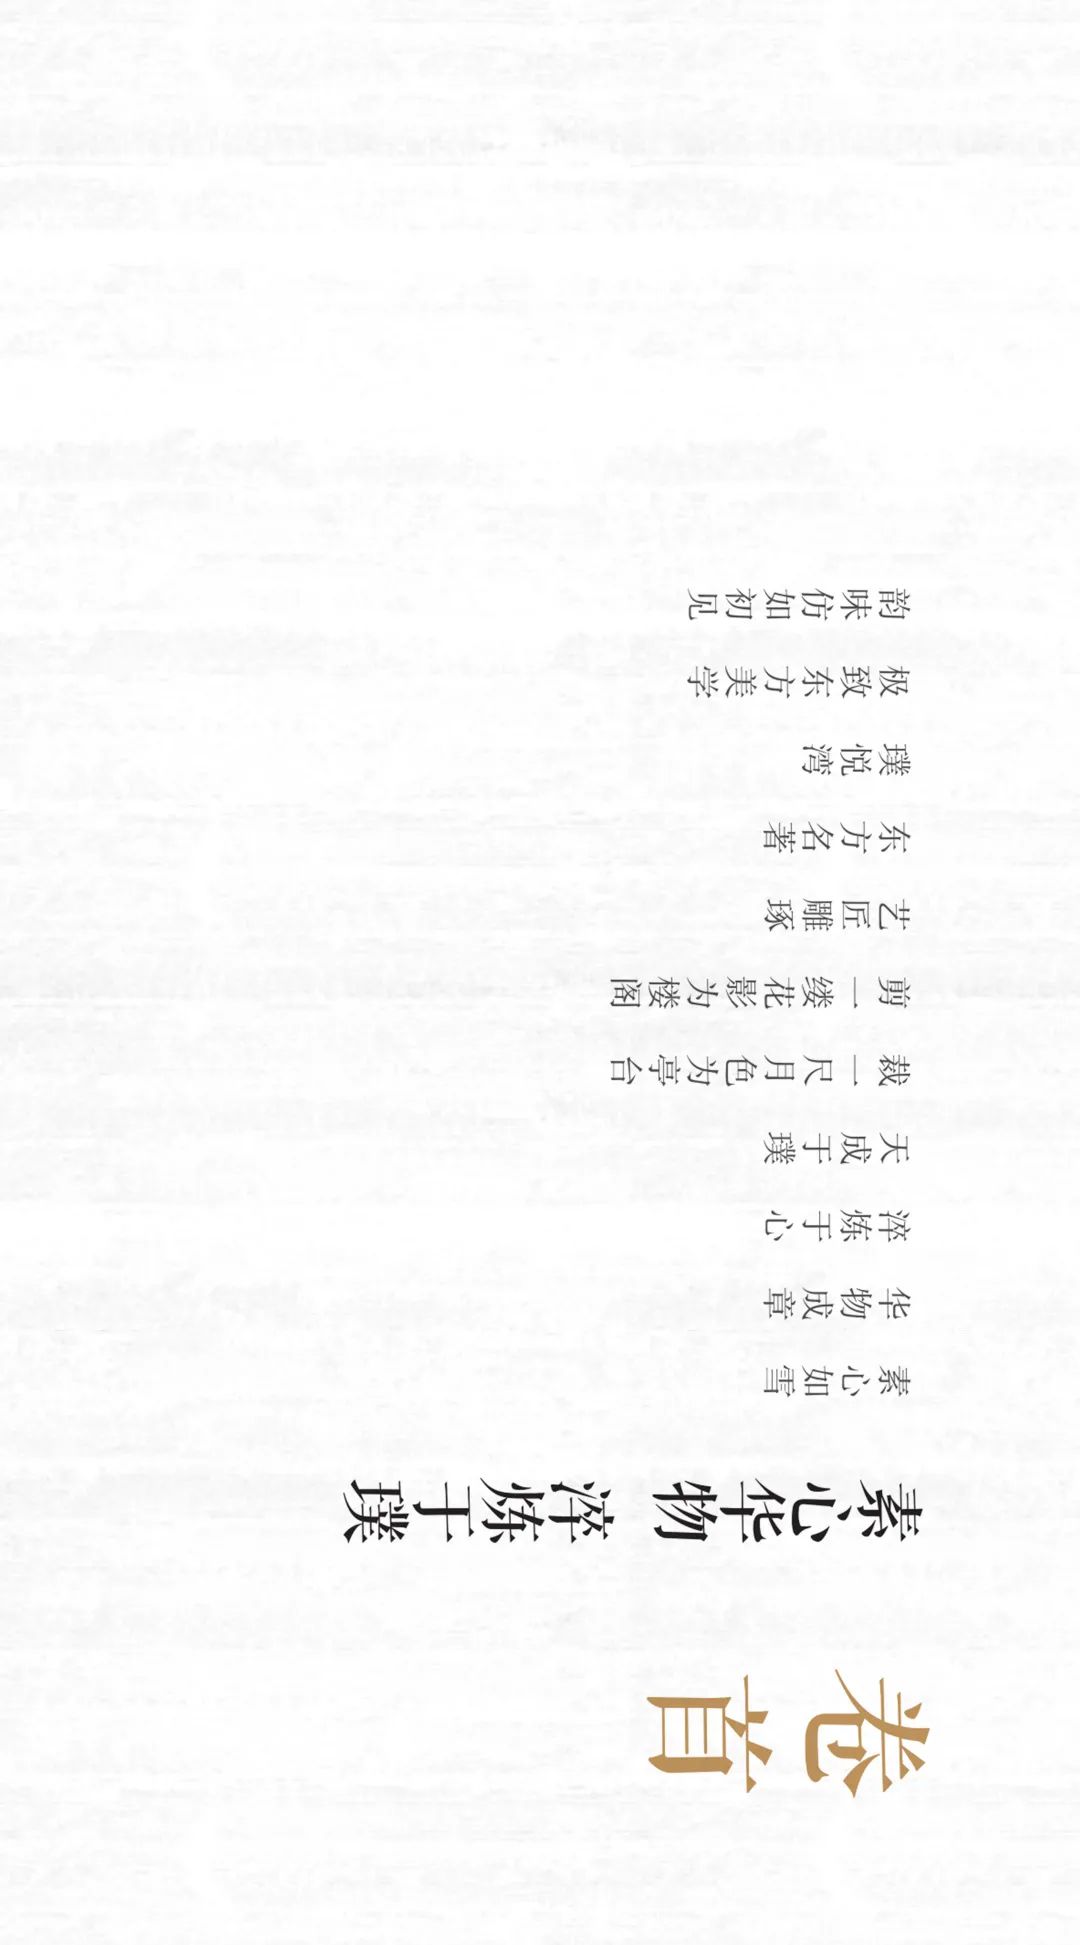 卷首
素心华物 淬炼于璞
素心如雪
华物成章
淬炼于心
天成于璞
裁一尺月色为亭台
剪一缕花影为楼阁
艺匠雕琢
东方名著
璞悦湾
极致东方美学
韵味仿如初见